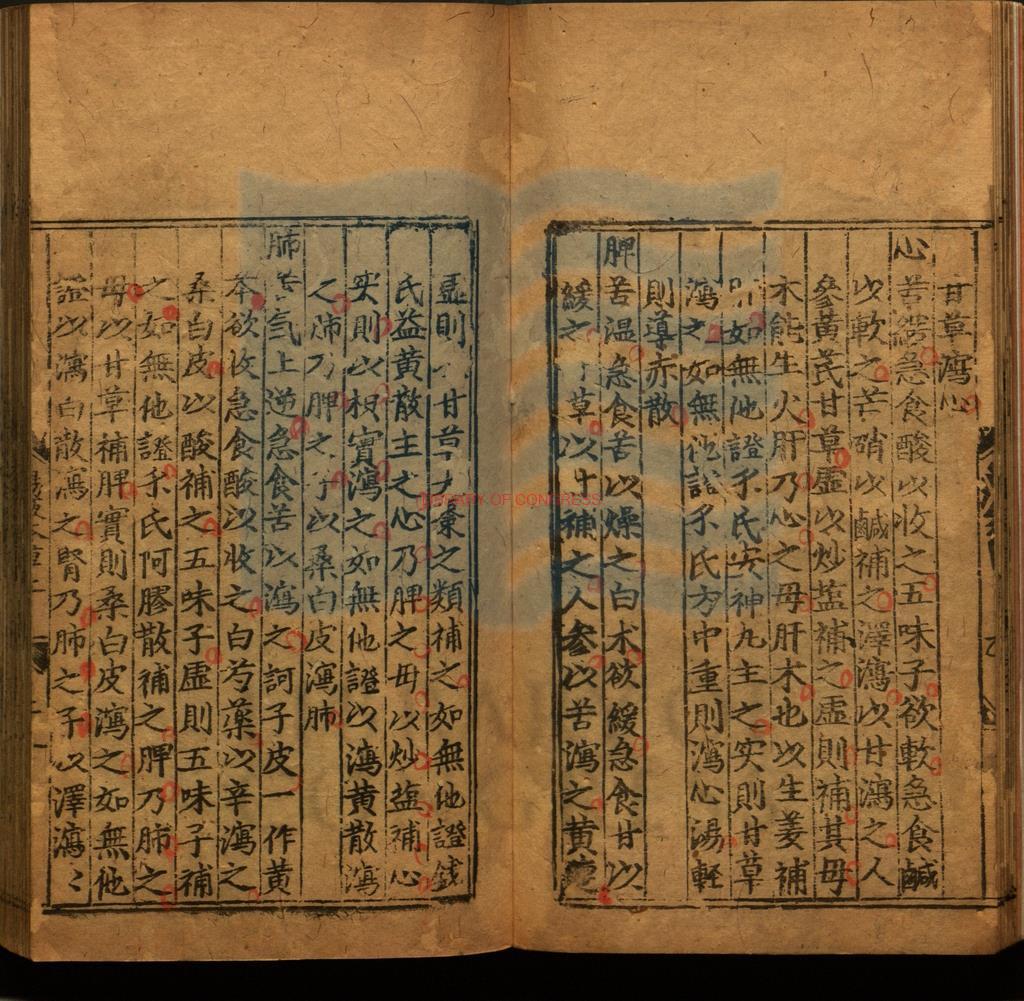 甘草瀉心
心苦緩急食酸以收之五味子欲軟急食鹹
以軟之芒硝以鹹補之澤瀉以甘瀉之人
參黃芪甘草虛以炒盐補之虛則補其母
木能生火肝乃心之母肝木也以生姜補
如無他證錢氏安神丸主之实則甘草
瀉之如無他證錢氏方中重則瀉心湯輕
則導赤散
脾苦温急食苦以燥之白术欲緩急食甘以
緩之甘草以甘補之人参以苦瀉之黄
虛則以甘草大棗之類補之如無他證錢
氏益黄散主之心乃脾之母以炒盐補心
实則以枳實瀉之如無他證以瀉黄散瀉
之肺乃脾之子以桑白皮瀉肺
肺苦氣上逆急食苦以瀉之訶子皮一作黄
芩欲收急食酸以收之白芍藥以辛瀉之
桑白皮以酸補之五味子虛則五味子補
之如無他證錢氏阿膠散補之脾乃肺之
母以甘草補脾實則桑白皮瀉之如無他
證以瀉白散瀉之腎乃肺之子以澤瀉〻
LIBRARY OF CONGRESS